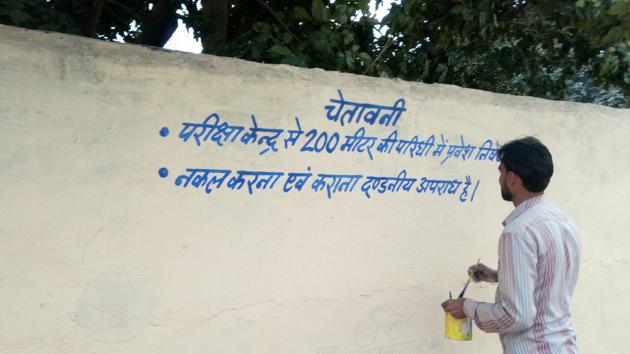 चेतावनी
• परीक्षा केन्द्र से 200 मीटर की परिधी में प्रवेश
• नकल करना एवं कराता दण्डनीय अपराध है।